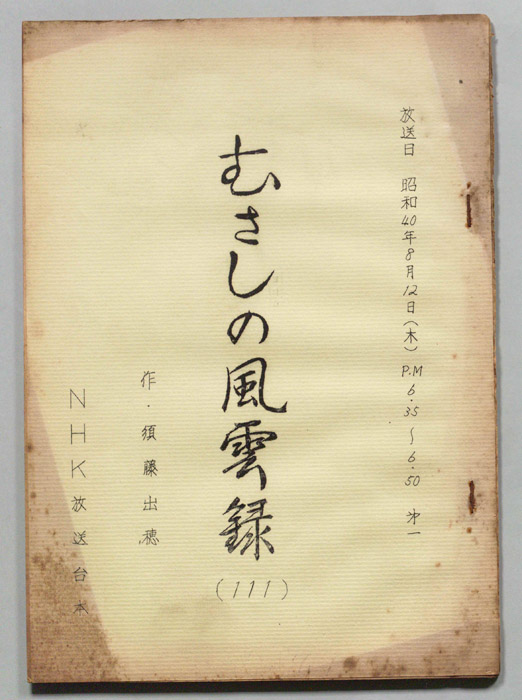 放送日 昭和40年8月12日(木) P.M 6.35〜6.50 第一
むさしの風雲録
(111)
作・須藤出穂
NHK放送台本